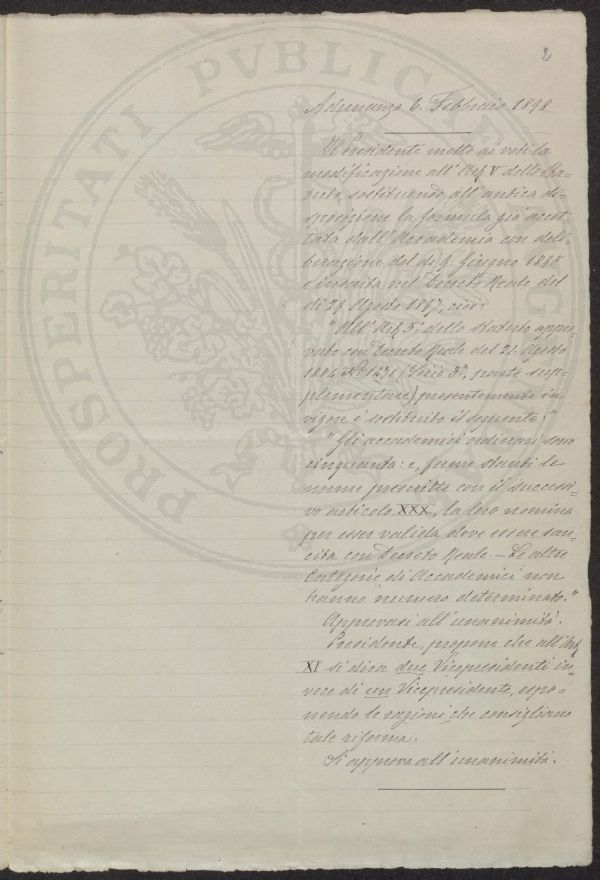 2
Adunanza 6. Febbraio 1898
Il Presidente mette ai voti la
modificazione all'Art. V dello Sta-
tuto, sostituendo all'antica di-
sposizione la formula già accet-
tata dall'Accademia con deli-
berazione del dì 9. Giugno 1895
e inserita nel Decreto Reale del
dì 29 Agosto 1897, cioè:
"All'Art. 5º dello Statuto appro-
vato con Decreto Reale del 21. Agosto
1884 Nº 1431 (Serie 3ª, parte sup-
plementare), presentemente in
vigore è sostituito il seguente:"
"Gli accademici ordinari sono
cinquanta: e, ferme stanti le
norme prescritte con il successi-
vo articolo XXX, la loro nomina
per esser valida deve essere san-
cita con Decreto Reale. — Le altre
Categorie di Accademici non
hanno numero determinato."
Approvasi all'unanimità.
Presidente, propone che all'Art.
XI si dica due Vicepresidenti in-
vece di un Vicepresidente, espo-
nendo le ragioni che consigliano
tale riforma.
Si approva all'unanimità.
PROSPERITATI PVBLICAE